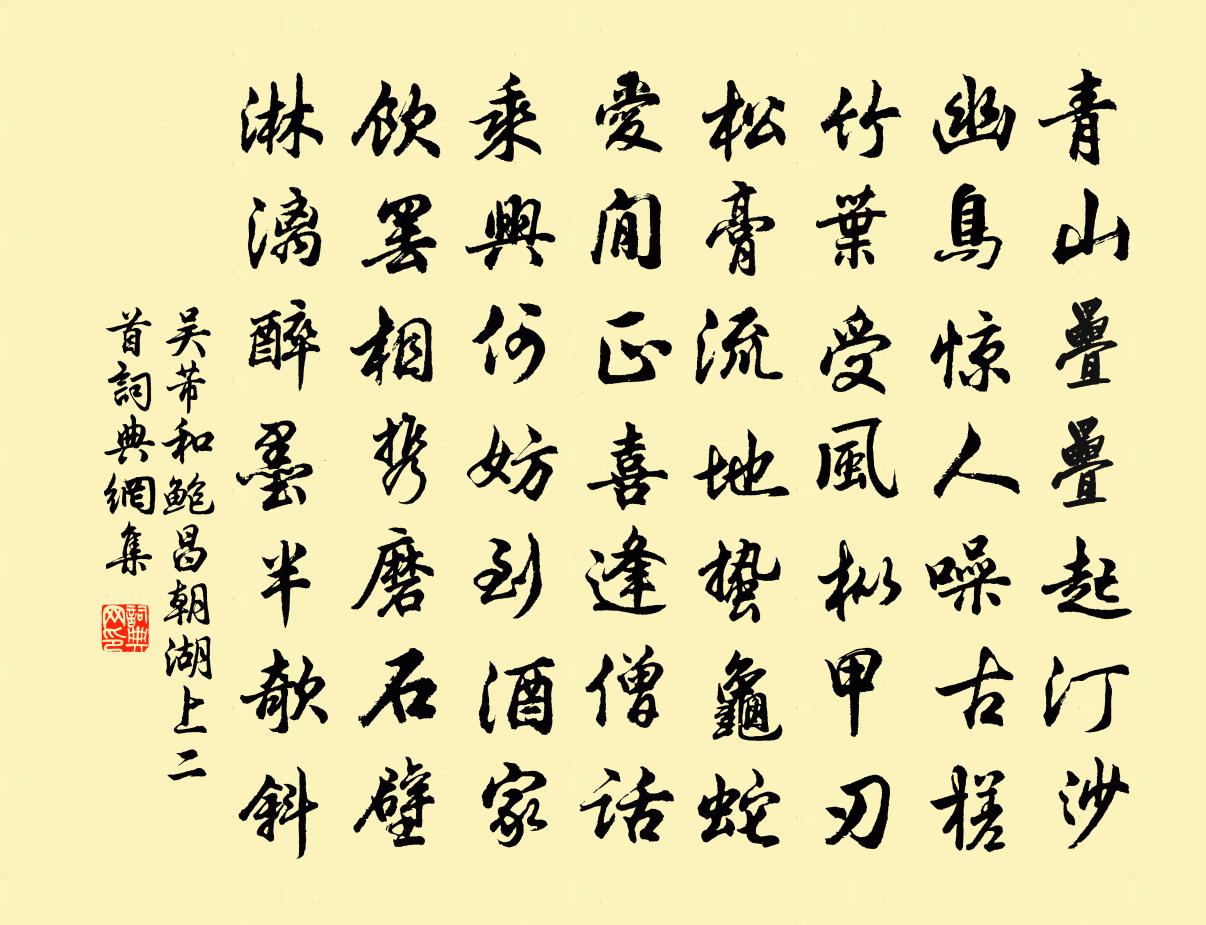 青山疊疊起汀沙
幽鳥惊人噪古槎
竹葉受風楸甲刃
松膏流地蟄龜蛇
愛閒正喜逢僧話
乘興何妨到酒家
飲罢相携磨石壁
淋漓醉墨半欹斜
吴芾和鲍昌朝湖上二
首詞典網集